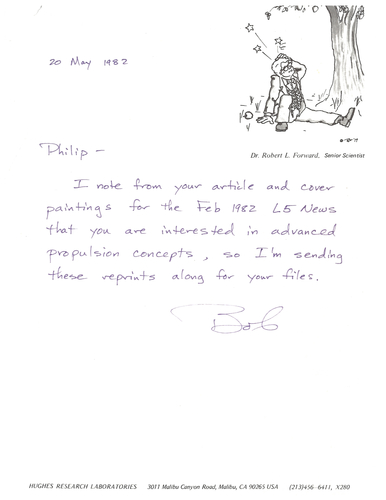 20 May 1982
Dr. Robert L. Forward, Senior Scientist
Philip -
I note from your article and cover
paintings for the Feb 1982 L5 News
that you are interested in advanced
propulsion concepts, so I'm sending
these reprints along for your files.
Bob
HUGHES RESEARCH LABORATORIES 3011 Malibu Canyon Road, Malibu, CA 90265 USA (213)456-6411, X280